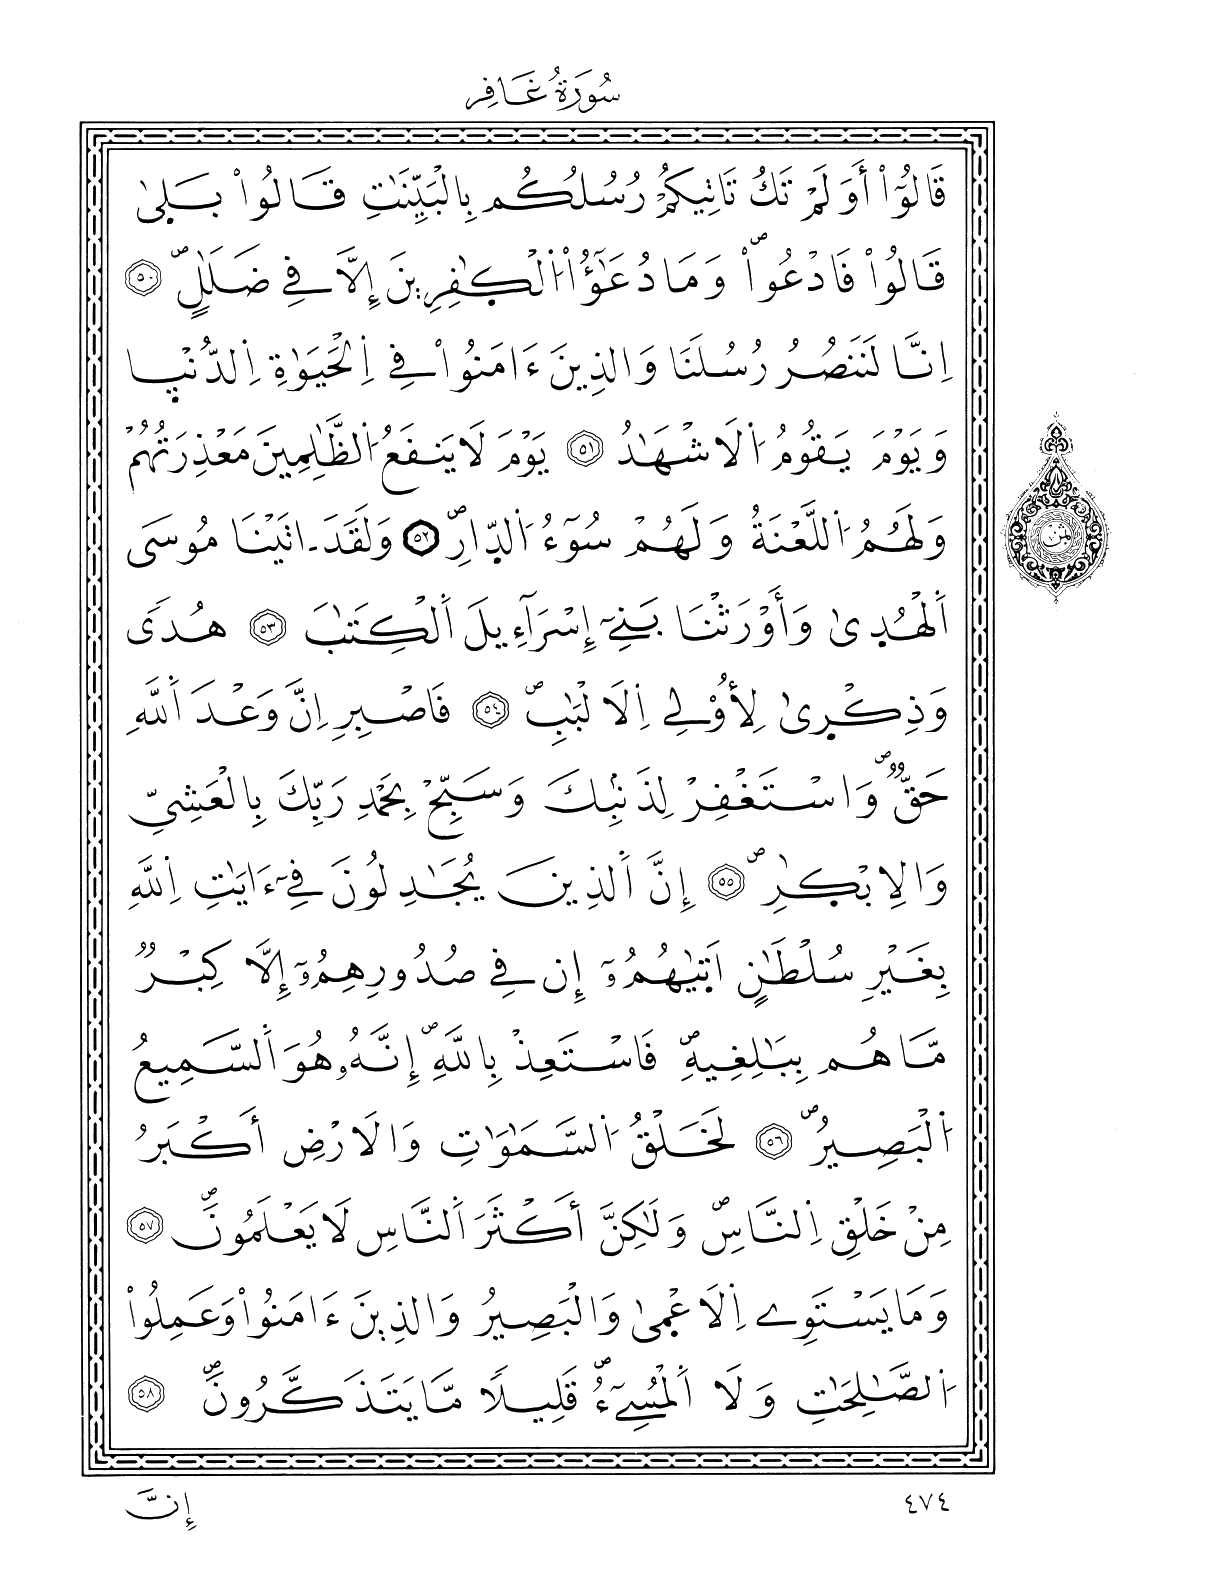 سُورَةُ غَافِرٍ
قَالُوٓاْ أَوَلَمْ تَكُ تَاتِيكُمْ رُسُلُكُم بِالْبَيِّنَٰتِ قَالُواْ بَلَىٰ
قَالُواْ فَادْعُواْۖ وَمَا دُعَٰٓؤُاْ اُ۬لْكٰ۪فِرِينَ إِلَّا فِے ضَلَٰلٍۖ ٥٠
اِنَّا لَنَنصُرُ رُسُلَنَا وَالذِينَ ءَامَنُواْ فِے اِ۬لْحَيَوٰةِ اِ۬لدُّنْي۪ا
وَيَوْمَ يَقُومُ اُ۬لَاشْهَٰدُ ٥١ يَوْمَ لَا يَنفَعُ اُ۬لظَّٰلِمِينَ مَعْذِرَتُهُمْ
وَلَهُمُ اُ۬للَّعْنَةُ وَلَهُمْ سُوٓءُ اُ۬لدّ۪ارِۖ ٥٢ وَلَقَدَ اٰتَيْنَا مُوسَى
اَ۬لْهُد۪ىٰ وَأَوْرَثْنَا بَنِےٓ إِسْرَآءِيلَ اَ۬لْكِتَٰبَ ٥٣ هُدىٗ
وَذِكْر۪ىٰ لِأُوْلِے اِ۬لَالْبَٰبِۖ ٥٤ فَاصْبِرِ اِنَّ وَعْدَ اَ۬للَّهِ
حَقّٞۖ وَاسْتَغْفِرْ لِذَنۢبِكَ وَسَبِّحْ بِحَمْدِ رَبِّكَ بِالْعَشِيِّ
وَالِابْكٰ۪رِۖ ٥٥ إِنَّ اَ۬لذِينَ يُجَٰدِلُونَ فِےٓ ءَايَٰتِ اِ۬للَّهِ
بِغَيْرِ سُلْطَٰنٍ اَت۪يٰهُمُۥٓ إِن فِے صُدُورِهِمُۥٓ إِلَّا كِبْرٞ
مَّا هُم بِبَٰلِغِيهِۖ فَاسْتَعِذْ بِاللَّهِۖ إِنَّهُۥ هُوَ اَ۬لسَّمِيعُ
اُ۬لْبَصِيرُۖ ٥٦ لَخَلْقُ اُ۬لسَّمَٰوَٰتِ وَالَارْضِ أَكْبَرُ
مِنْ خَلْقِ اِ۬لنَّاسِۖ وَلَٰكِنَّ أَكْثَرَ اَ۬لنَّاسِ لَا يَعْلَمُونَۖ ٥٧
وَمَا يَسْتَوِے اِ۬لَاعْم۪ىٰ وَالْبَصِيرُ وَالذِينَ ءَامَنُواْ وَعَمِلُواْ
اُ۬لصَّٰلِحَٰتِ وَلَا اَ۬لْمُسِےٓءُۖ قَلِيلاٗ مَّا يَتَذَكَّرُونَۖ ٥٨
ثمن
٤٧٤
إِنَّ